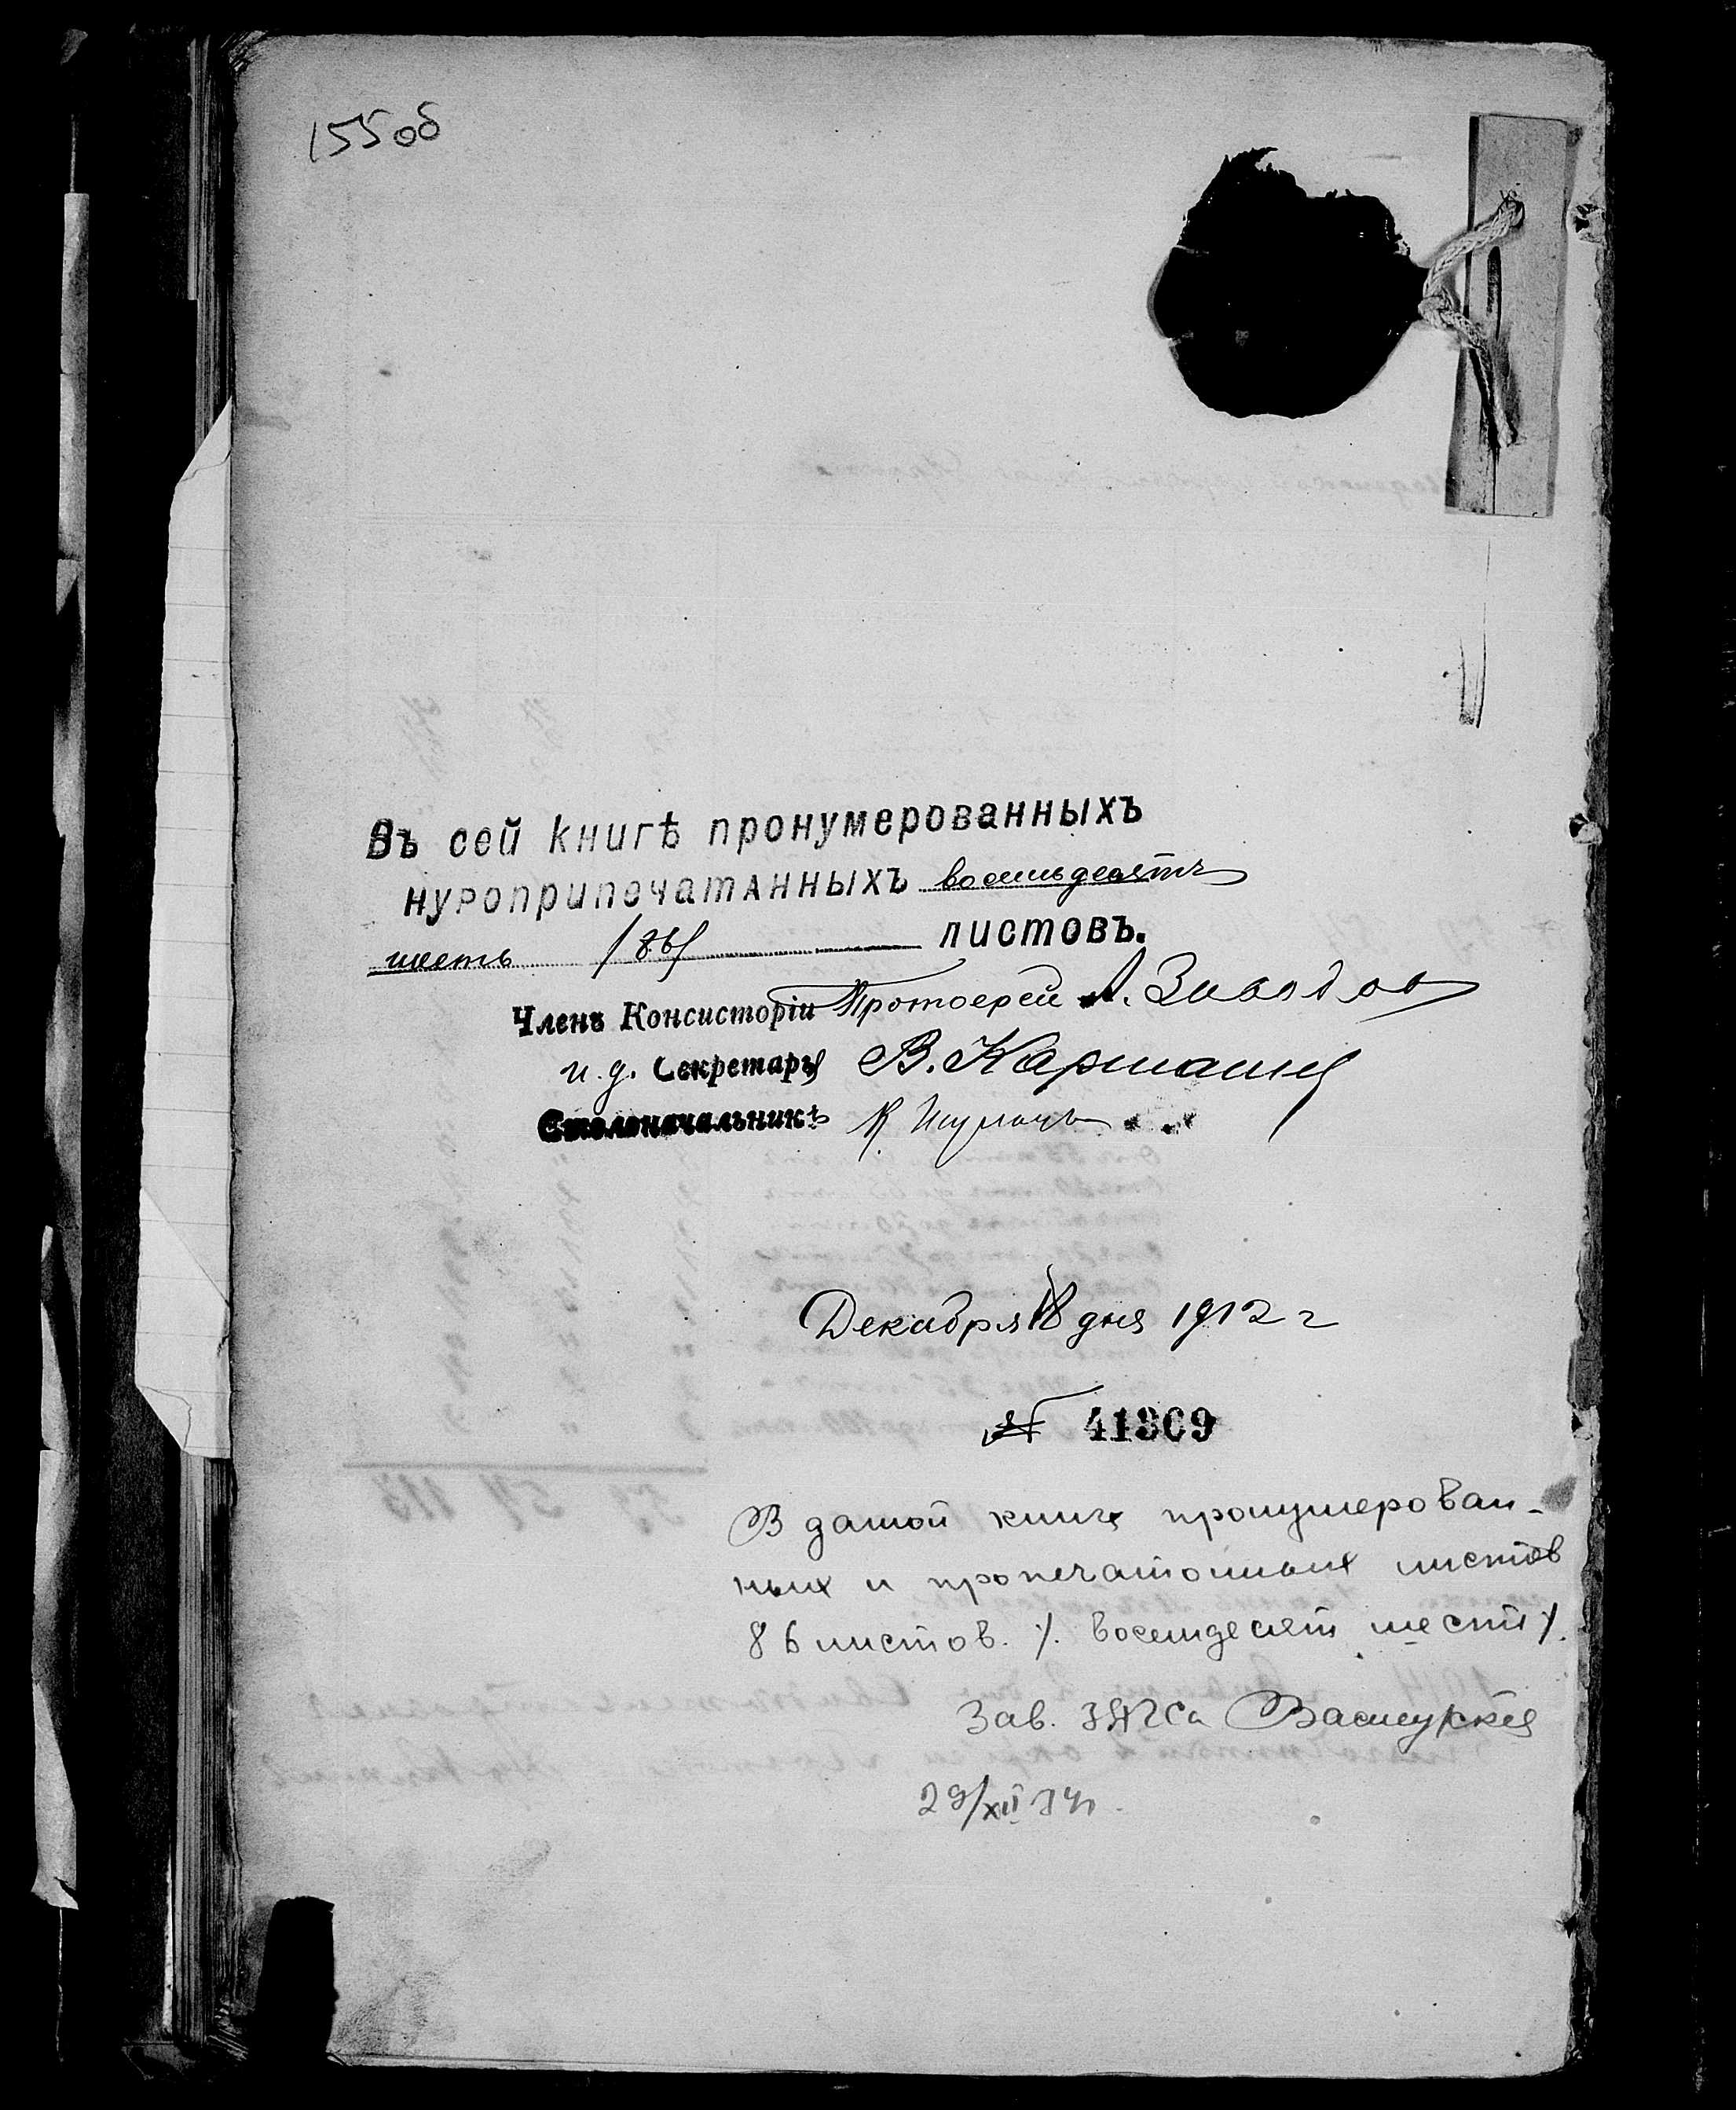 155об
Въ сей книгѣ пронумерованныхъ
нуроприпечатанныхъ восемьдесятъ
шесть /86/ листовъ.
Членъ Консисторіи Протоерей А. Заводов
и.д. Секретаря В. Кармашъ
Столоначальникъ К.
Декабря 18 дня 1912 г
№ 41309
В даной книге пронумерован-
ных и пропечатоных листов
86 листов. /. восемдесят шесть /.
Зав. ЗАГСа
29/XII